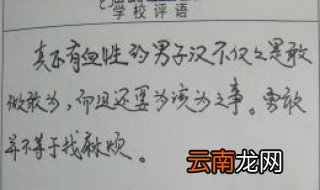 学校评语
真正有血性的男子汉不仅仅是敢
做敢为,而且还要为该为之事。勇敢
并不等于找麻烦。
云南龙网